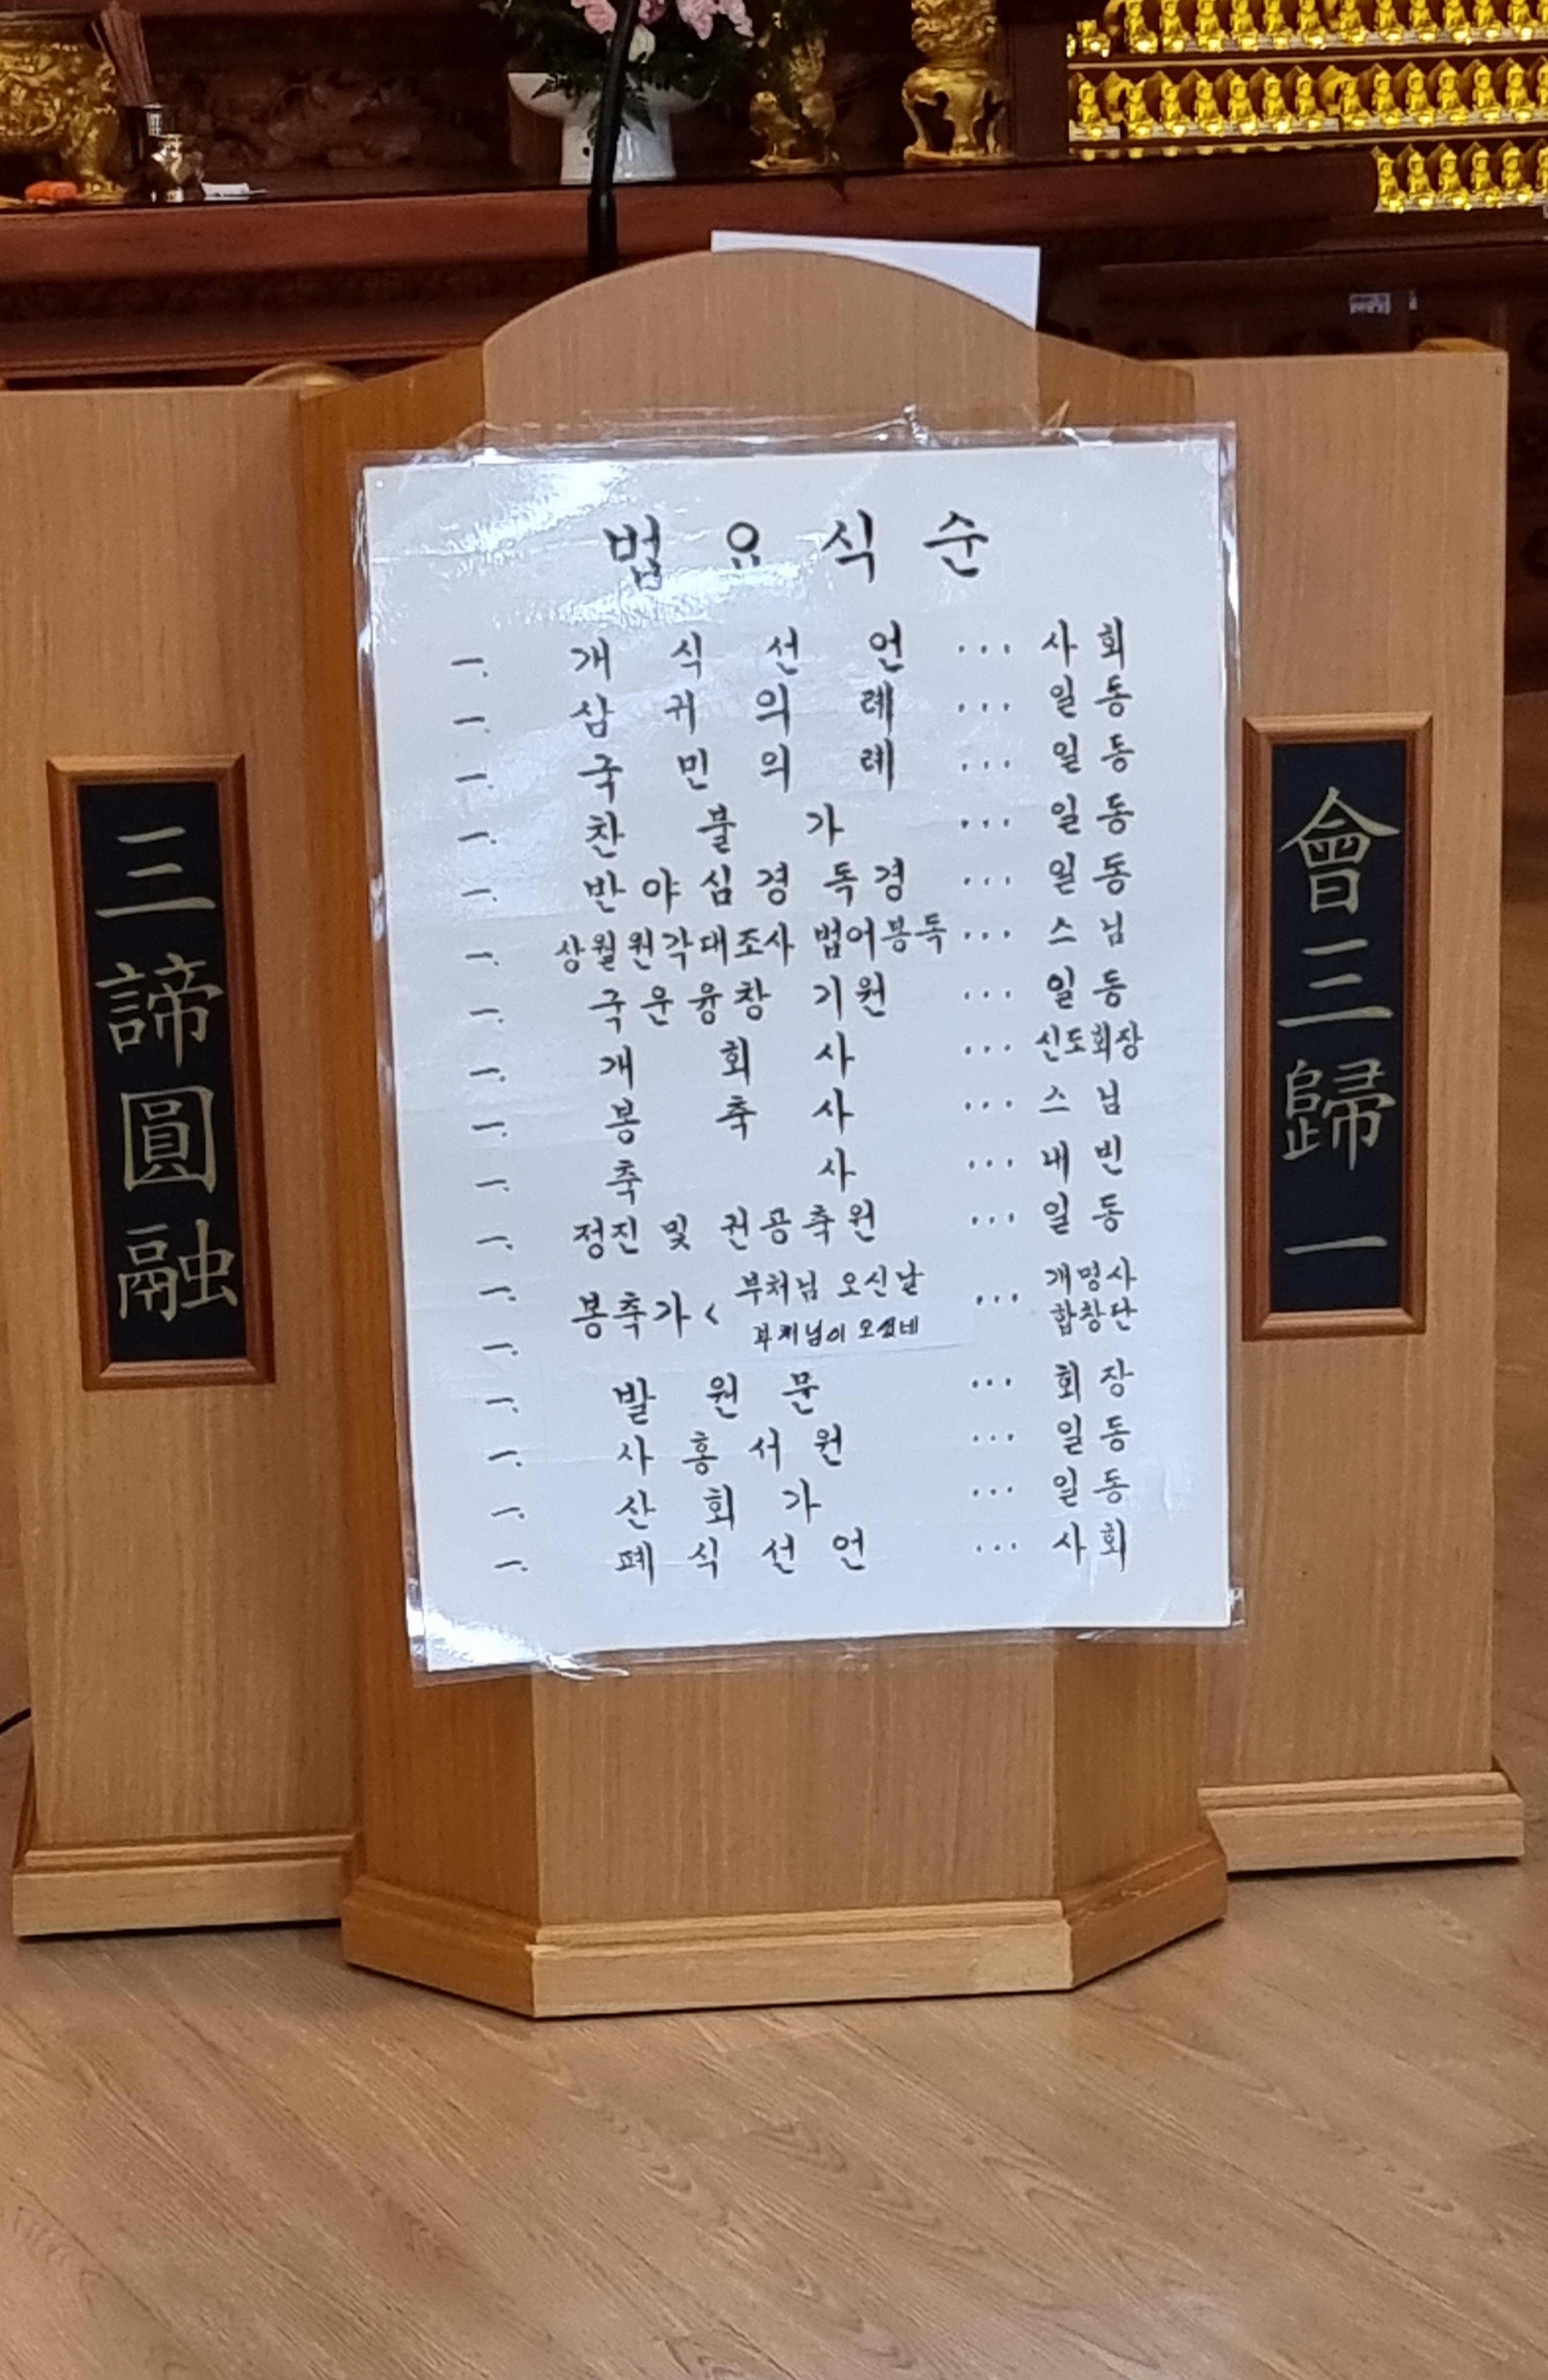 법요식순
一. 개식선언 ... 사회
一. 삼귀의례 ... 일동
一. 국민의례 ... 일동
一. 찬불가 ... 일동
一. 반야심경 독경 ... 일동
一. 상월원각대조사 법어봉독 ... 스님
一. 국운융창 기원 ... 일동
一. 개회사 ... 신도회장
一. 봉축사 ... 스님
一. 축사 ... 내빈
一. 정진 및 권공축원 ... 일동
一. 봉축가 < 부처님 오신날 ... 개명사
一. 부처님이 오셨네 합창단
一. 발원문 ... 회장
一. 사홍서원 ... 일동
一. 산회가 ... 일동
一. 폐식선언 ... 사회
三諦圓融
會三歸一